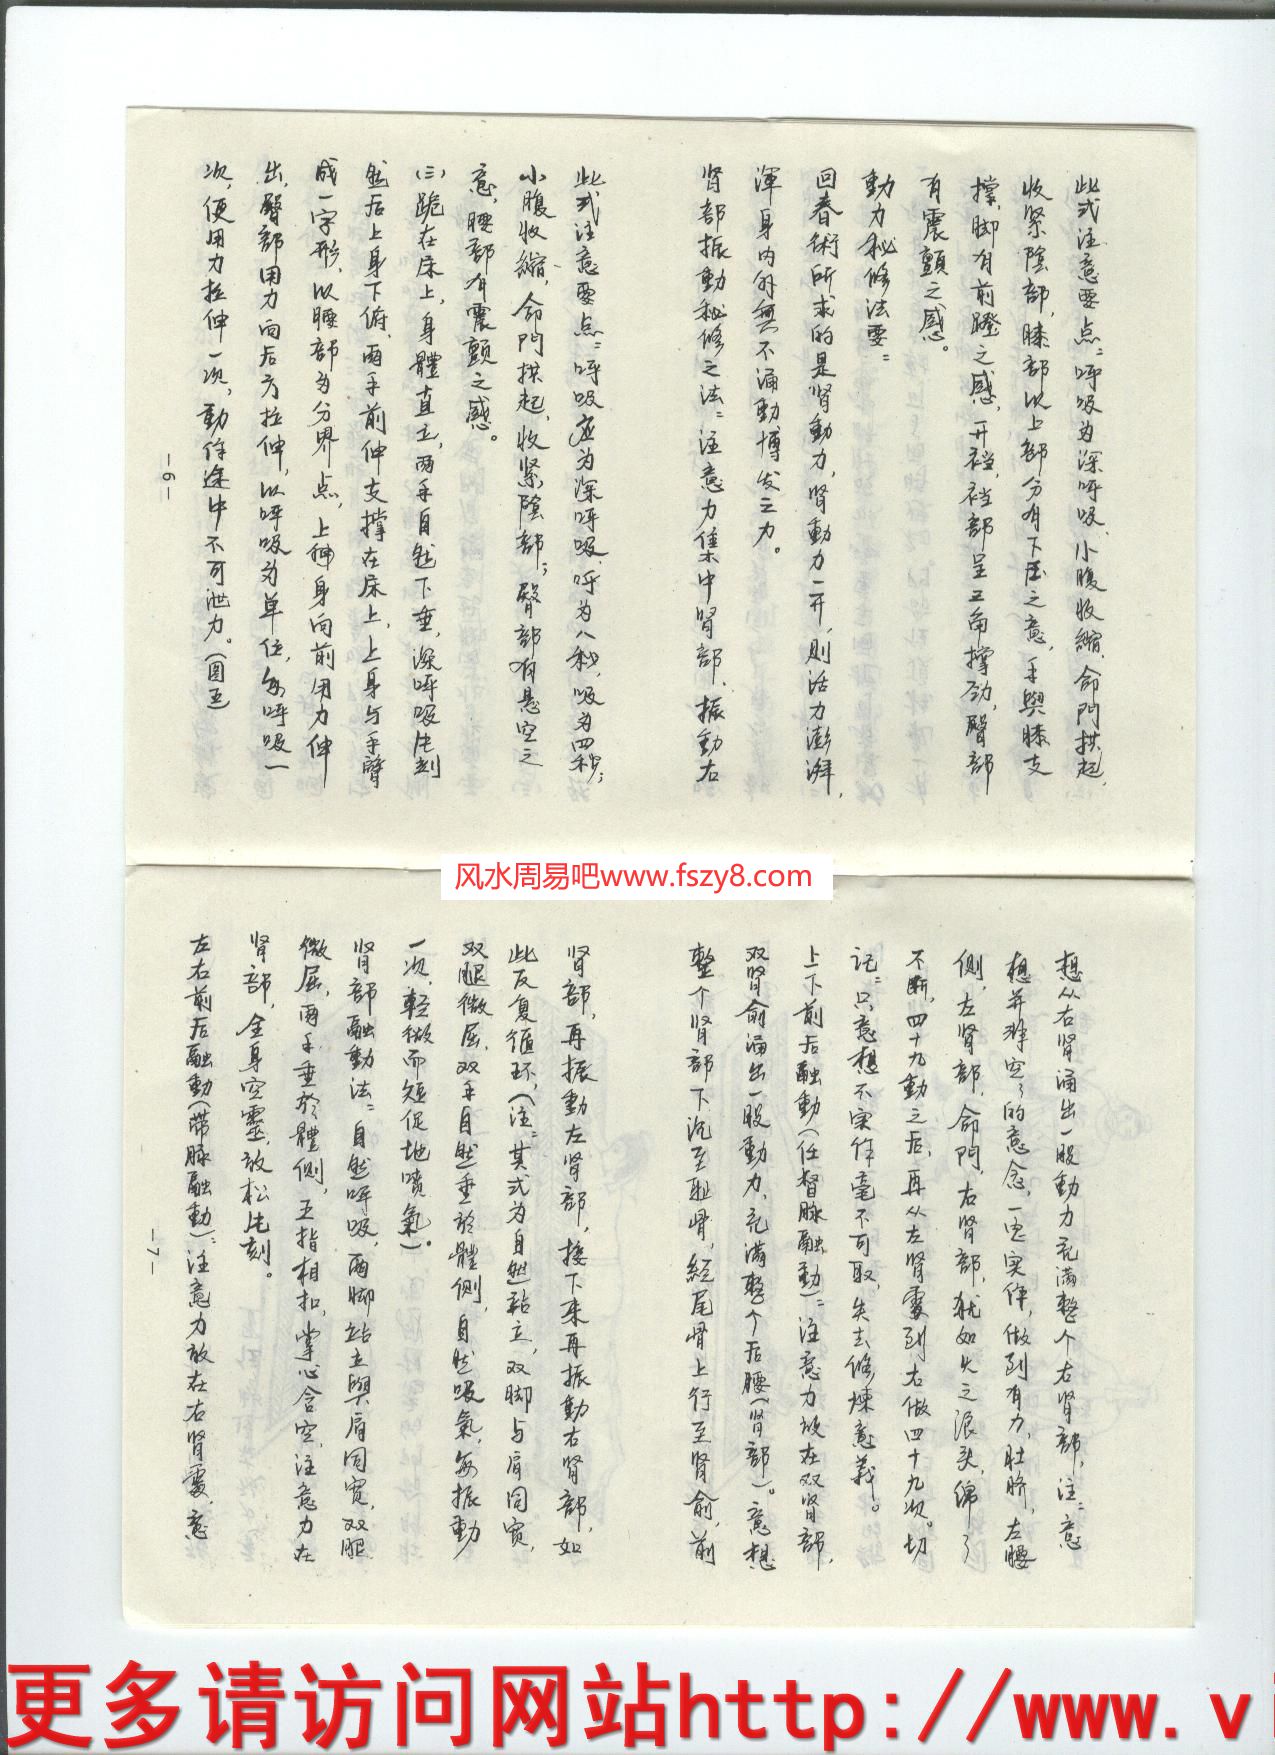 此式注意要点：呼吸应为深呼吸，呼为八秒，吸为四秒；
小腹收縮，命門拱起，收紧陰部；臀部有悬空之
意，腰部有震顫之感。
(三)跪在床上，身體直立，两手自然下垂，深呼吸片刻
然后上身下俯，两手前伸支撑在床上，上身与手臂
成一字形，以腰部为分界点，上神身向前用力伸
出，臀部用力向后方拉伸，以呼吸为单位，每呼吸一
次，便用力拉伸一次，動作途中不可泄力。(图五)
此式注意要点：呼吸为深呼吸，小腹收縮，命門拱起，
收紧陰部，膝部以上部分有下压之意，手與膝支
撑，脚有前蹬之感，开裆，裆部呈三角撑劲，臀部
有震顫之感。
動力秘修法要：
回春術所求的是肾動力，肾動力一开，則活力澎湃，
渾身内外無不涌動博发之力。
肾部振動秘修之法：注意力集中肾部，振動右
-6-
肾部，再振動左肾部，接下来再振動右肾部，如
此反复循环，(注：其式为自然站立，双脚与肩同宽，
双腿微屈，双手自然垂於體侧，自然吸氣，每振動
一次，輕微而短促地噴氣)。
肾部融動法：自然呼吸，两脚站立與肩同宽，双腿
微屈，两手垂於體侧，五指相扣，掌心含空，注意力在
肾部，全身空靈，放松片刻。
左右前后融動(带脉融動)：注意力放在右肾處，意
想从右肾涌出一股動力充满整个右肾部，注：意
想并非空空的意念，一定实作，做到有力，肚脐，左腰
侧，左肾部，命門，右肾部，犹如火之浪头，绵々
不断，四十九動之后，再从左肾處到右做四十九次。切
记：只意想不实作毫不可取，失去修煉意義。
上下前后融動(任督脉融動)：注意力放在双肾部，
双肾俞涌出一股動力，充满整个后腰(肾部)。意想
整个肾部下沉至耻骨，经尾骨上行至肾俞，前
-7-
风水周易吧www.fszy8.com
更多请访问网站http://www.v